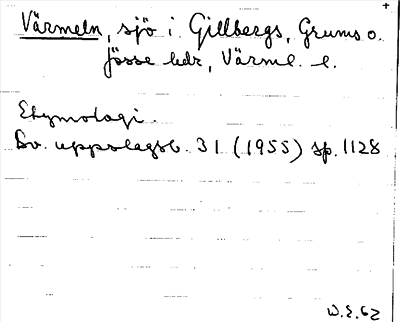 Värmeln, sjö i Gillbergs, Grums o.
Jösse hdr, Värml. l.
Etymologi.
Sv. uppslagsb. 31 (1955) sp. 1128
W.E.62